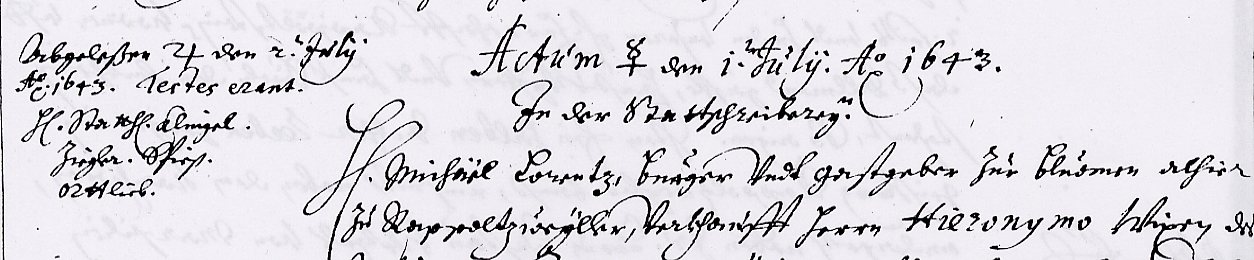 Abgeleßen ♃ den 2.ᵗ July
Aᵒ. 1643. Testes erant.
H. Stattsch. Klingel.
Ziegler. Spieß.
Ortlieb.
Actum ☿ den 1.ᵗ July. Aᵒ 1643.
In der Stattschreiberey.
H. Michäel Lorentz, burger Vndt gastgeber zur bluomen alhier
Zu Rappoltzweyller, Verkhaufft herrn Hieronymo Wixen, des